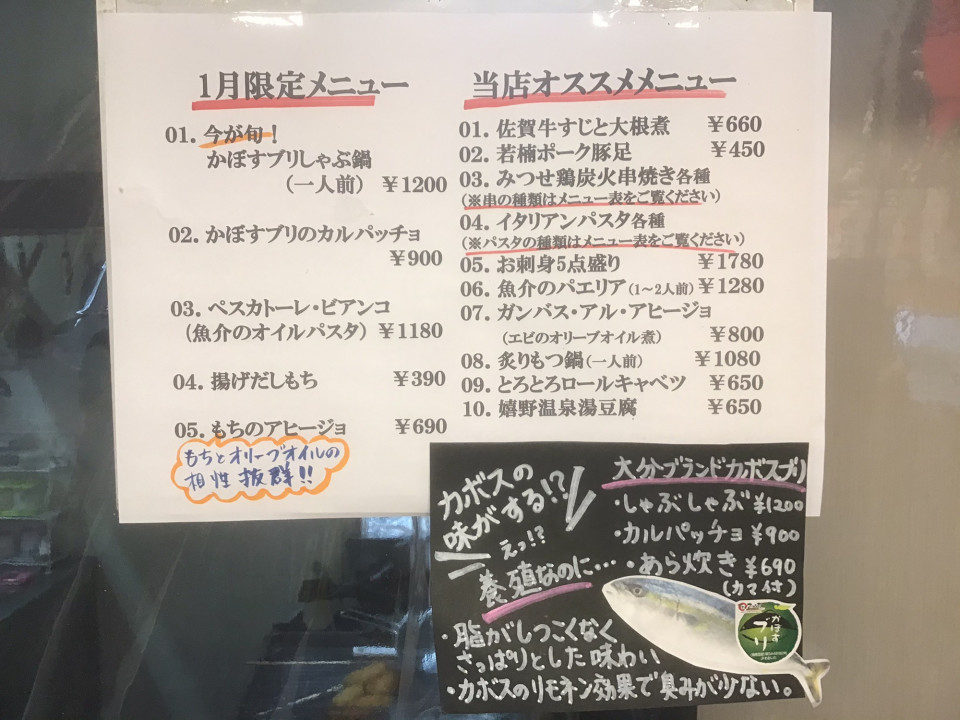 1月限定メニュー
01. 今が旬!
かぼすブリしゃぶ鍋
(一人前) ¥1200
02. かぼすブリのカルパッチョ
¥900
03. ペスカトーレ・ビアンコ
(魚介のオイルパスタ) ¥1180
04. 揚げだしもち ¥390
05. もちのアヒージョ ¥690
もちとオリーブオイルの
相性抜群!!
当店オススメメニュー
01. 佐賀牛すじと大根煮 ¥660
02. 若楠ポーク豚足 ¥450
03. みつせ鶏炭火串焼き各種
(※串の種類はメニュー表をご覧ください)
04. イタリアンパスタ各種
(※パスタの種類はメニュー表をご覧ください)
05. お刺身5点盛り ¥1780
06. 魚介のパエリア(1〜2人前) ¥1280
07. ガンバス・アル・アヒージョ
(エビのオリーブオイル煮) ¥800
08. 炙りもつ鍋(一人前) ¥1080
09. とろとろロールキャベツ ¥650
10. 嬉野温泉湯豆腐 ¥650
カボスの
味がする!?
えっ!?
養殖なのに…
大分ブランドカボスブリ
・しゃぶしゃぶ ¥1200
・カルパッチョ ¥900
・あら炊き ¥690
(カマ付)
・脂がしつこくなく
さっぱりとした味わい
・カボスのリモネン効果で臭みが少ない。
かぼす
ブリ